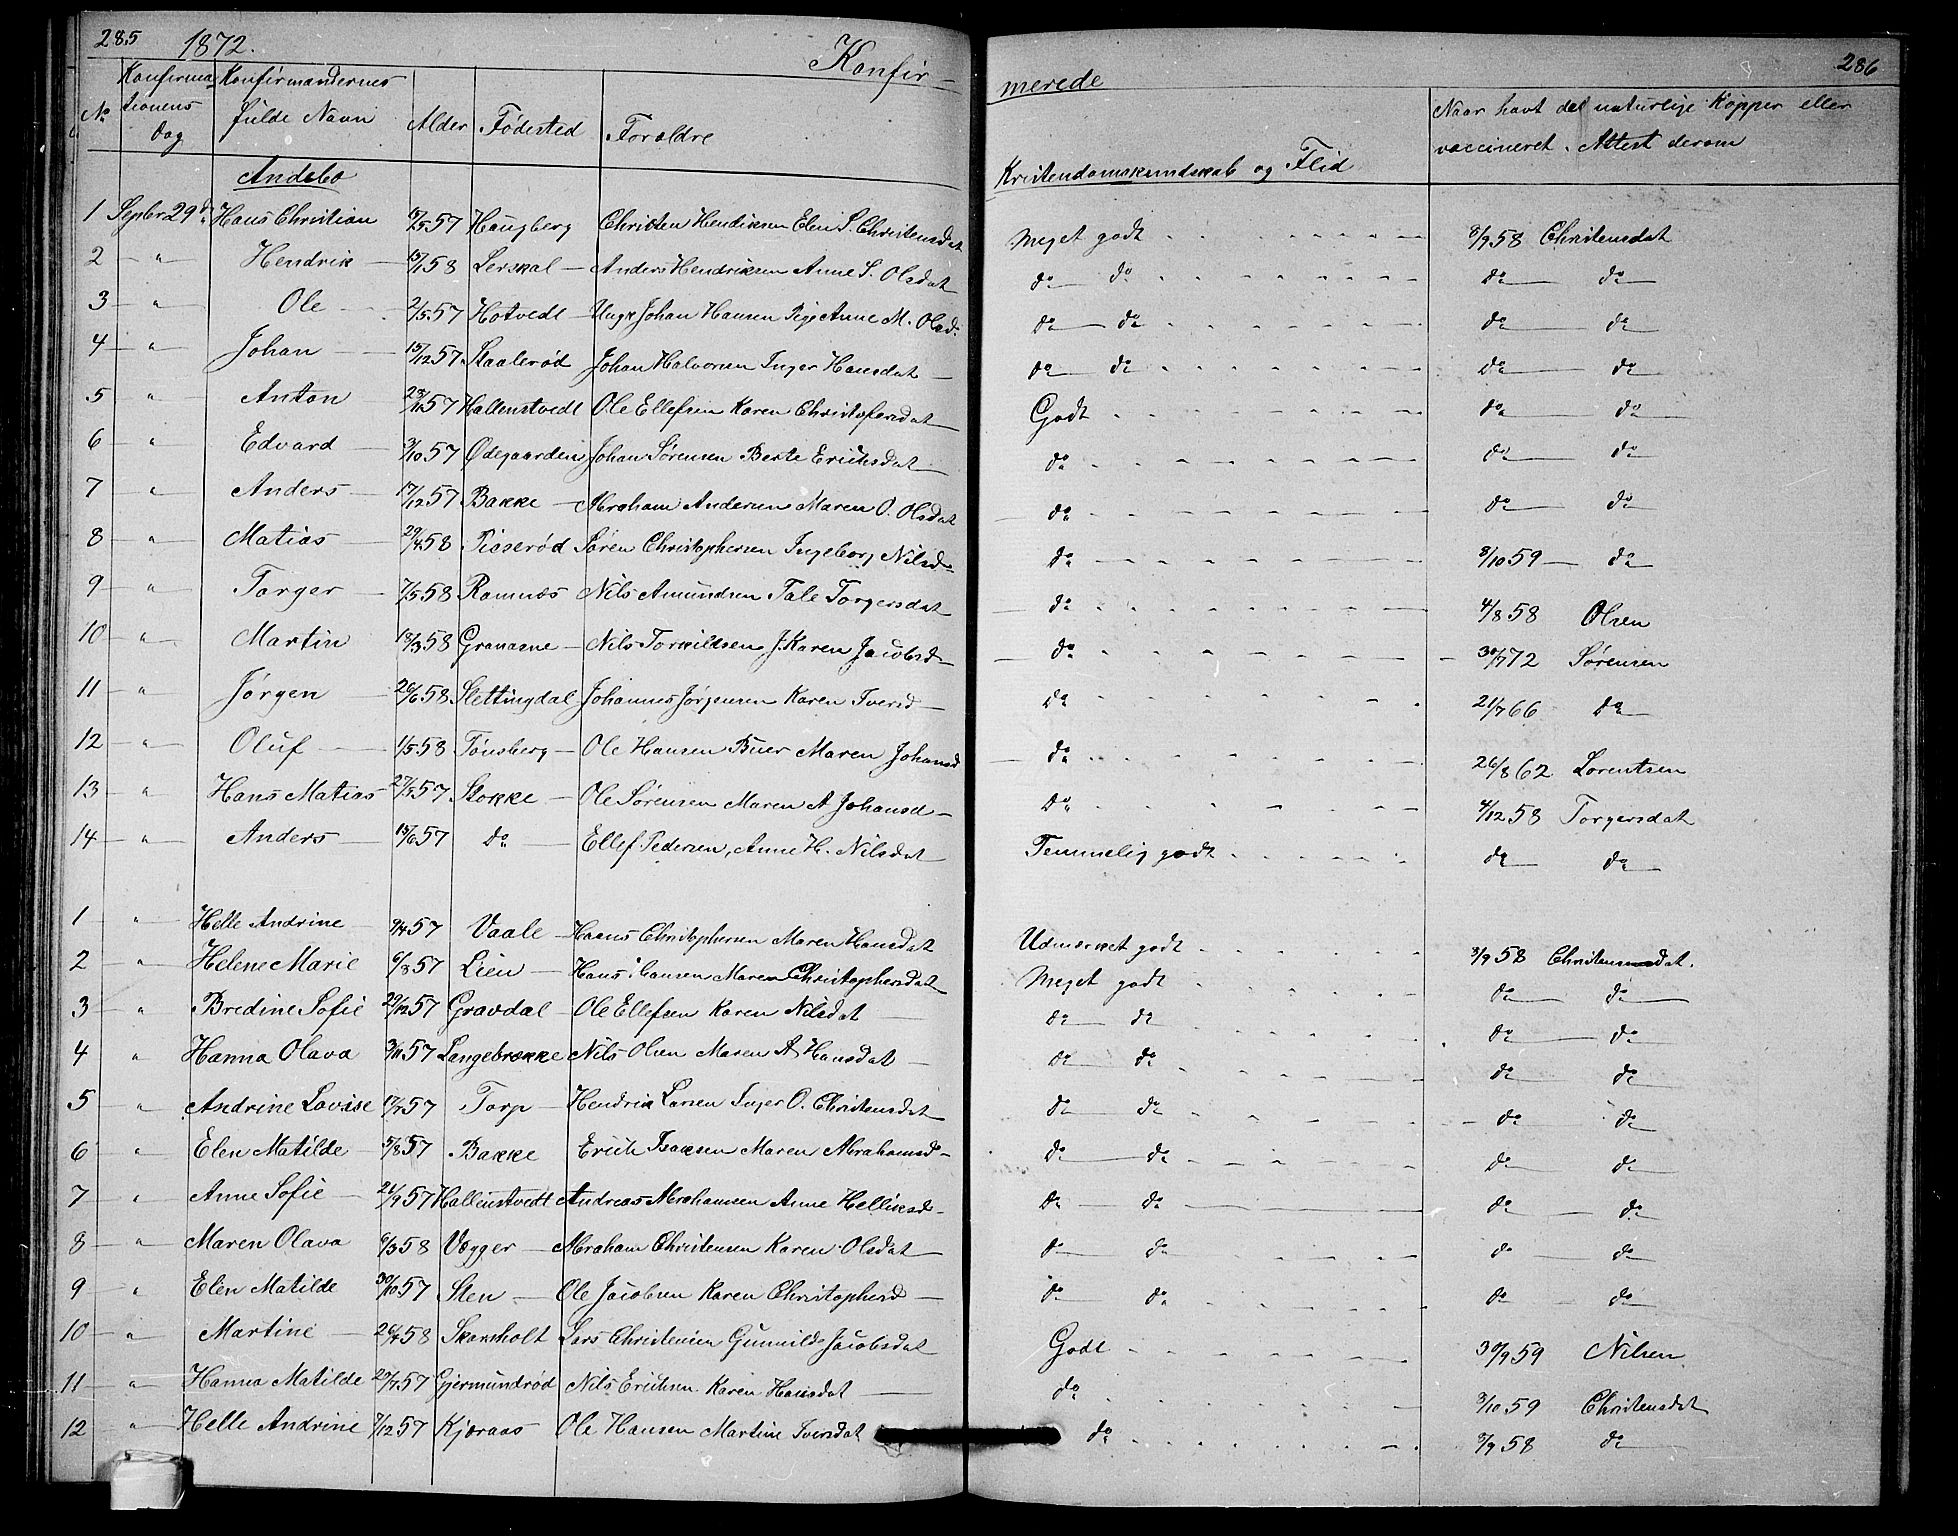 285 1872. Konfir-
merede 286
No Konfirma tionens Dag Konfirmandernes fulde Navn Alder Fødested Forældre Kristendomskundskab og Flid Naar havt de naturlige Kopper eller vaccineret. Attest derom
Andebo
1 Septbr 29 Hans Christian 57 Haugberg Christen Hendriksen Elen S. Christensdat Meget godt 8/9 58 Christensdat
2 — " — Hendrik — 15/1 58 Lerskal — Anders Hendriksen Anne S. Olsdat — do do do do
3 — " — Ole — 2/5 57 Hotvedt — Ungk Johan Hansen Pige Anne M. Olsd. do do do do
4 — " — Johan — 15/12 57 Staalerød Johan Halvorsen Inger Hansdat — do do do do
5 " — Anton 29/11 57 Hallenstvedt Ole Ellefsen Karen Christofersdat — Godt do do
6 — " — Edvard — 3/10 57 Ødegaarden Johan Sørensen Berte Erichsdat — do do do
7 — " — Anders — 17/12 57 Bakke — Abraham Andersen Maren O. Olsdat — do do do
8 — " — Matias — 29/4 58 Søren Christophersen Ingeborg Nilsd — do 8/10 59 — do
9 — " — Torger — 7/5 58 Ramnæs Nils Amundsen Tale Torgersdat — do 4/8 58 Olsen
10 — " — Martin — 18/3 58 Nils Torkildsen J. Karen Jacobsd — do — 30/7 72 Sørensen
11 — " — Jørgen — 26/6 58 Slettingdal Johannes Jørgensen Karen Iversd — do 21/7 66 do
12 — " — Oluf — 1/5 58 Tønsberg — Ole Hansen Buer Maren Johansd — do 26/8 62 Lorentsen
13 — " — Hans Matias 27/5 57 Stokke — Ole Sørensen Maren A Johansd — do 4/12 58 Torgersdat
14 — " — Anders — 15/6 57 do — Ellef Pedersen, Anne H. Nilsdat — Temmelig godt do do
1 — " — Helle Andrine — 9/4 57 Vaale — Hans Christophersen Maren Hansdat Udmerket godt 3/9 58 Christensdat.
2 — " — Helene Marie 6/8 57 Lien — Hans Hansen Maren Christophersdat Meget godt do do
3 — " Bredine Sofie 29/12 57 Gravdal — Ole Ellefsen Karen Nilsdat — do do do do
4 " Hanna Olava 3/11 57 Langebrække Nils Olsen Maren A Hansdat — do do do do
5 " Andrine Lovise 17/7 57 Torp — Hendrik Larsen Inger O. Christensdat do do do do
6 — " — Elen Matilde — 5/8 57 Bakke Erich Isaksen Maren Abrahamsd — do do do do
7 — " — Anne Sofie — 21/9 57 Hallenstvedt Andreas Abrahamsen Anne Helliksd — do do do do
8 — " Maren Olava 6/3 58 Vegger — Abraham Christensen Karen Olsdat — do do do do
9 — " Elen Matilde 30/10 57 Sten — Ole Jacobsen Karen Christophersd — do do do do
10 — " — Martine — 26/4 58 Skarsholt Lars Christensen Gunnild Jacobsdat — Godt 30/9 59 Nilsen
11 — " — Hanna Matilde 29/7 57 Gjermundrød Nils Erichsen Karen Hansdat — do 3/10 59 Christensdat
12 " — Helle Andrine 7/12 57 Kjæraas Ole Hansen Martine Iversdat do 8/9 58 do